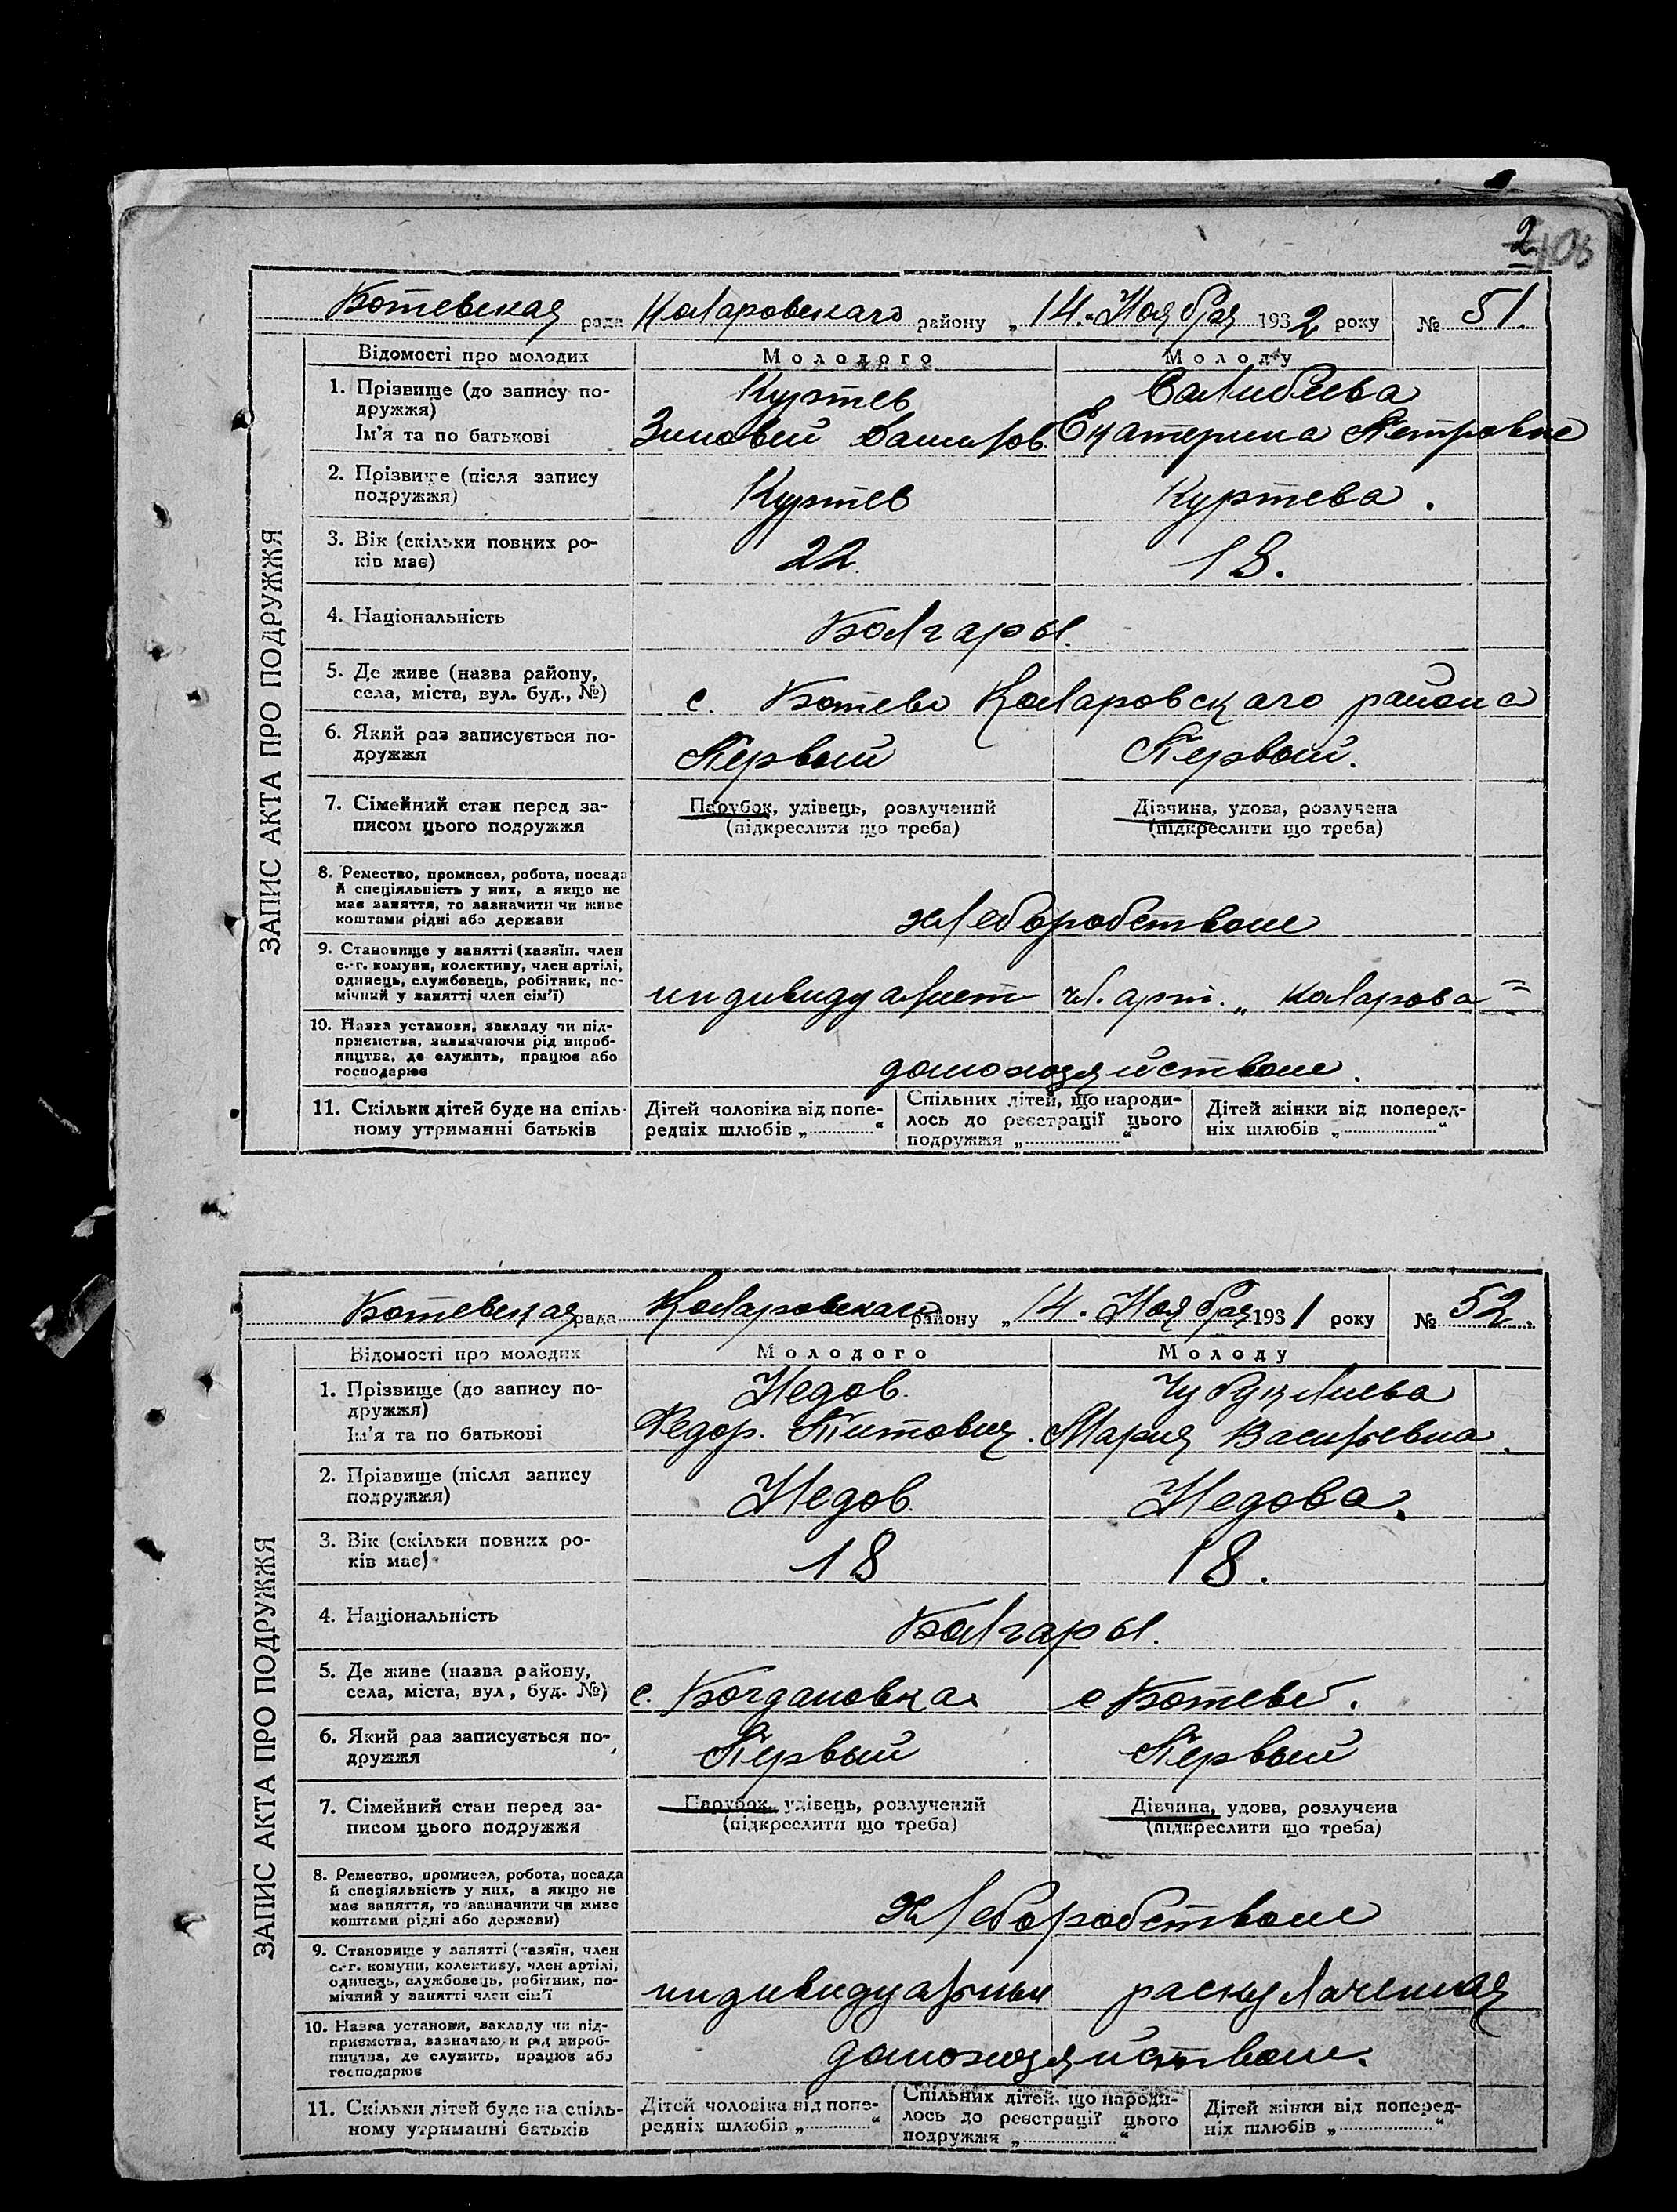 2
108
Ботевская рада Коларовского району „14.“ Ноября 1932 року № 51.
ЗАПИС АКТА ПРО ПОДРУЖЖЯ
Відомості про молодих Молодого Молоду
1. Прізвище (до запису по- Куртев Балибеева
дружжя)
Ім'я та по батькові Зиновей Екатерина Петровне
2. Прізвище (після запису Куртев Куртева.
подружжя)
3. Вік (скільки повних ро- 22. 18.
ків має)
4. Національність Болгары.
5. Де живе (назва району,
села, міста, вул. буд., №) с. Ботево Коларовского района
6. Який раз записується по- Первый Первый.
дружжя
7. Сімейний стан перед за- Парубок, удівець, розлучений Дівчина, удова, розлучена
писом цього подружжя (підкреслити що треба) (підкреслити що треба)
8. Ремество, промисел, робота, посада
й спеціяльність у них, а якщо не
має заняття, то зазначити чи живе
коштами рідні або держави хлеборобством
9. Становище у занятті (хазяїн, член
с.-г. комуни, колективу, член артілі,
одинець, службовець, робітник, по-
мічний у занятті член сім'ї) индивидуалист чл. арт. „Коларова“
10. Назва установи, закладу чи під-
приємства, зазначаючи рід вироб-
ництва, де служить, працює або
господарює домохозяйством.
11. Скільки дітей буде на спіль- Дітей чоловіка від попе- Спільних дітей, що народи- Дітей жінки від поперед-
ному утриманні батьків редніх шлюбів „ “ лось до реєстрації цього ніх шлюбів „ “
подружжя „ “
Ботевская рада Коларовского району „14. Ноября 1931 року № 52.
ЗАПИС АКТА ПРО ПОДРУЖЖЯ
Відомості про молодих Молодого Молоду
1. Прізвище (до запису по- Недов. Чубуклиева
дружжя)
Ім'я та по батькові Федор. Титович. Мария Васильевна.
2. Прізвище (після запису Недов. Недова.
подружжя)
3. Вік (скільки повних ро- 18 18.
ків має)
4. Національність Болгары.
5. Де живе (назва району,
села, міста, вул, буд. №) с. Богдановка с Ботево.
6. Який раз записується по- Первый Первый
дружжя
7. Сімейний стан перед за- Парубок, удівець, розлучений Дівчина, удова, розлучена
писом цього подружжя (підкреслити що треба) (підкреслити що треба)
8. Ремество, промисел, робота, посада
й спеціяльність у них, а якщо не
має заняття, то зазначити чи живе
коштами рідні або держави) хлеборобством
9. Становище у занятті (хазяїн, член
с.-г. комуни, колективу, член артілі,
одинець, службовець, робітник, по-
мічний у занятті член сім'ї раскулаченная
10. Назва установи, закладу чи під-
приємства, зазначаючи рід вироб-
ництва, де служить, працює або
господарює домохозяйством.
11. Скільки дітей буде на спіль- Дітей чоловіка від попе- Спільних дітей, що народи- Дітей жінки від поперед-
ному утриманні батьків редніх шлюбів „ “ лось до реєстрації цього ніх шлюбів „ “
подружжя „ “